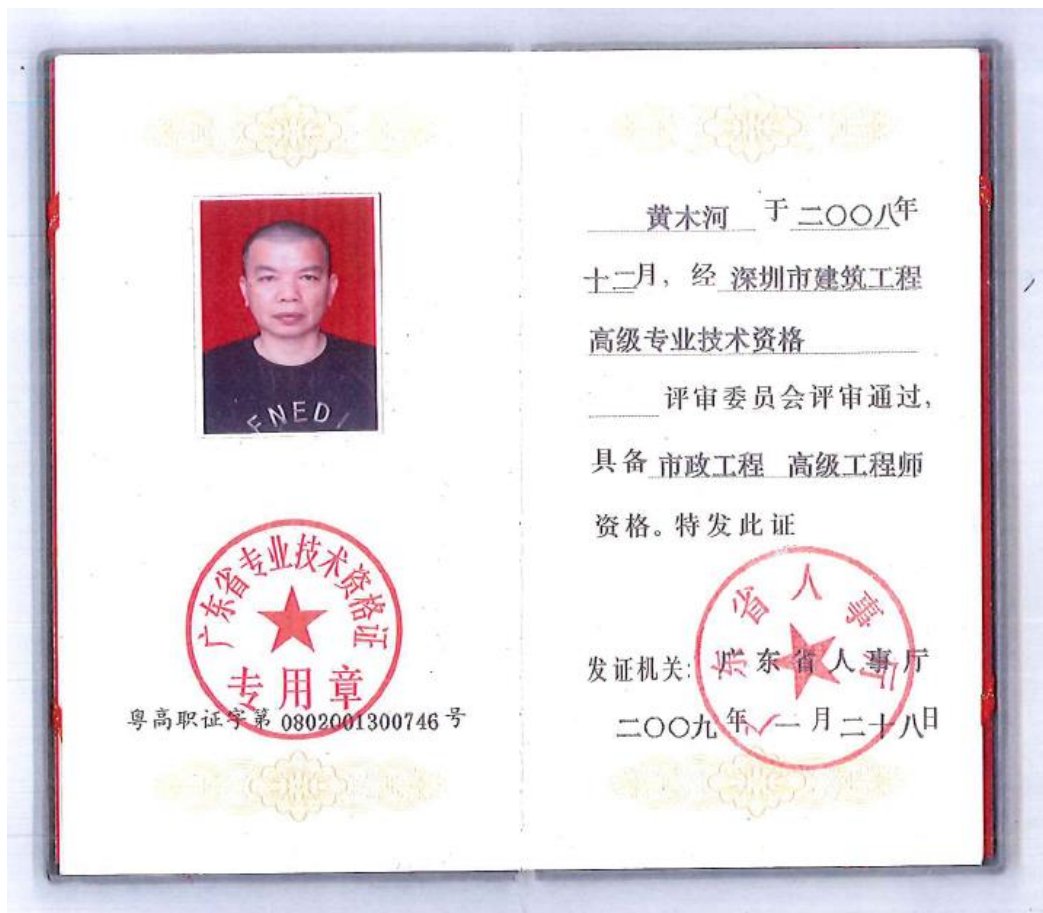 FNED
广东省专业技术资格证
专用章
粤高职证字第 0802001300746 号
黄木河 于 二〇〇八年
十二月，经 深圳市建筑工程
高级专业技术资格
评审委员会评审通过，
具备 市政工程 高级工程师
资格。特发此证
广东省人事厅
发证机关：广东省人事厅
二〇〇九年一月二十八日